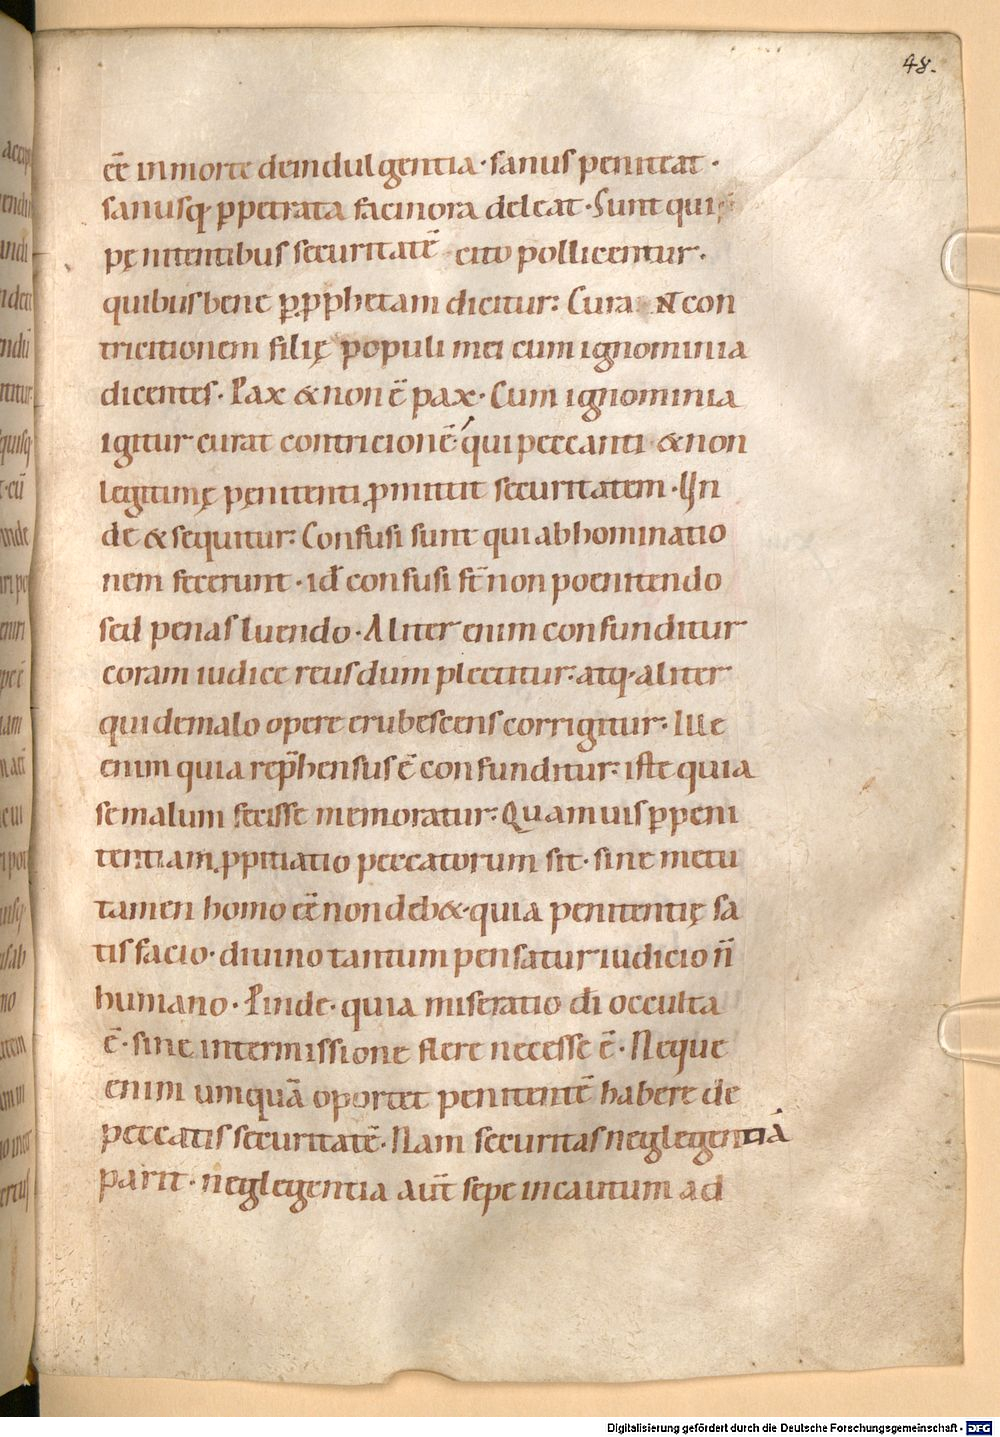 48.
eẽ in morte de indulgentia · sanus peniteat ·
sanusq; ꝑpetrata facinora deleat · Sunt qui
pęnitentibus securitatẽ cito pollicentur ·
quibus bene ꝑ ꝓphetam dicitur: Cura nt con
tricitionem filię populi mei cum ignominia
dicentes · Pax & non ẽ pax · Cum ignominia
igitur curat contricionẽ qui peccanti & non
legitimę pęnitenti ꝓmittit securitatem · In
de & sequitur: Confusi sunt qui abhominatio
nem fecerunt · id confusi st̃ non poenitendo
sed penas luendo · Aliter enim confunditur
coram iudice reus dum plectitur: atq; aliter
qui de malo opere erubescens corrigitur: Ille
enim quia rep̃hensus ẽ confunditur: iste quia
se malum fecisse memoratur: Quamuis ꝑ peni
tentiam ꝓpitiatio peccatorum sit · sine metu
tamen homo eẽ non deb& · quia penitentię sa
tisfacio · diuino tantum pensatur iudicio ñ
humano · Pinde · quia miseratio dĩ occulta
ẽ · sine intermissione flere necesse ẽ · Neque
enim umquã oportet penitentẽ habere de
peccatis securitatẽ · Nam securitas neglegentiã
parit · neglegentia aut̃ sepe incautum ad
Digitalisierung gefördert durch die Deutsche Forschungsgemeinschaft - DFG